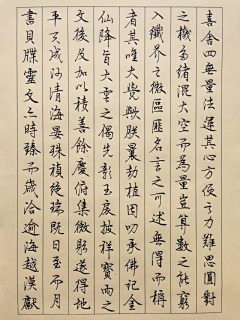 喜舍四無量法運其心方便之力難思圓對
之機多緒混大空而為量豈算數之能窮
入纖芥之微區匪名言之可述無得而稱
者其唯大覺歟朕曩劫植因叨承佛記金
仙降旨大雲之偈先彰玉扆披祥寶雨之
文後及加以積善餘慶俯集微躬遂得地
平天成河清海晏殊禎絕瑞既日至而月
書貝牒靈文亦時臻而歲洽逾海越漠獻